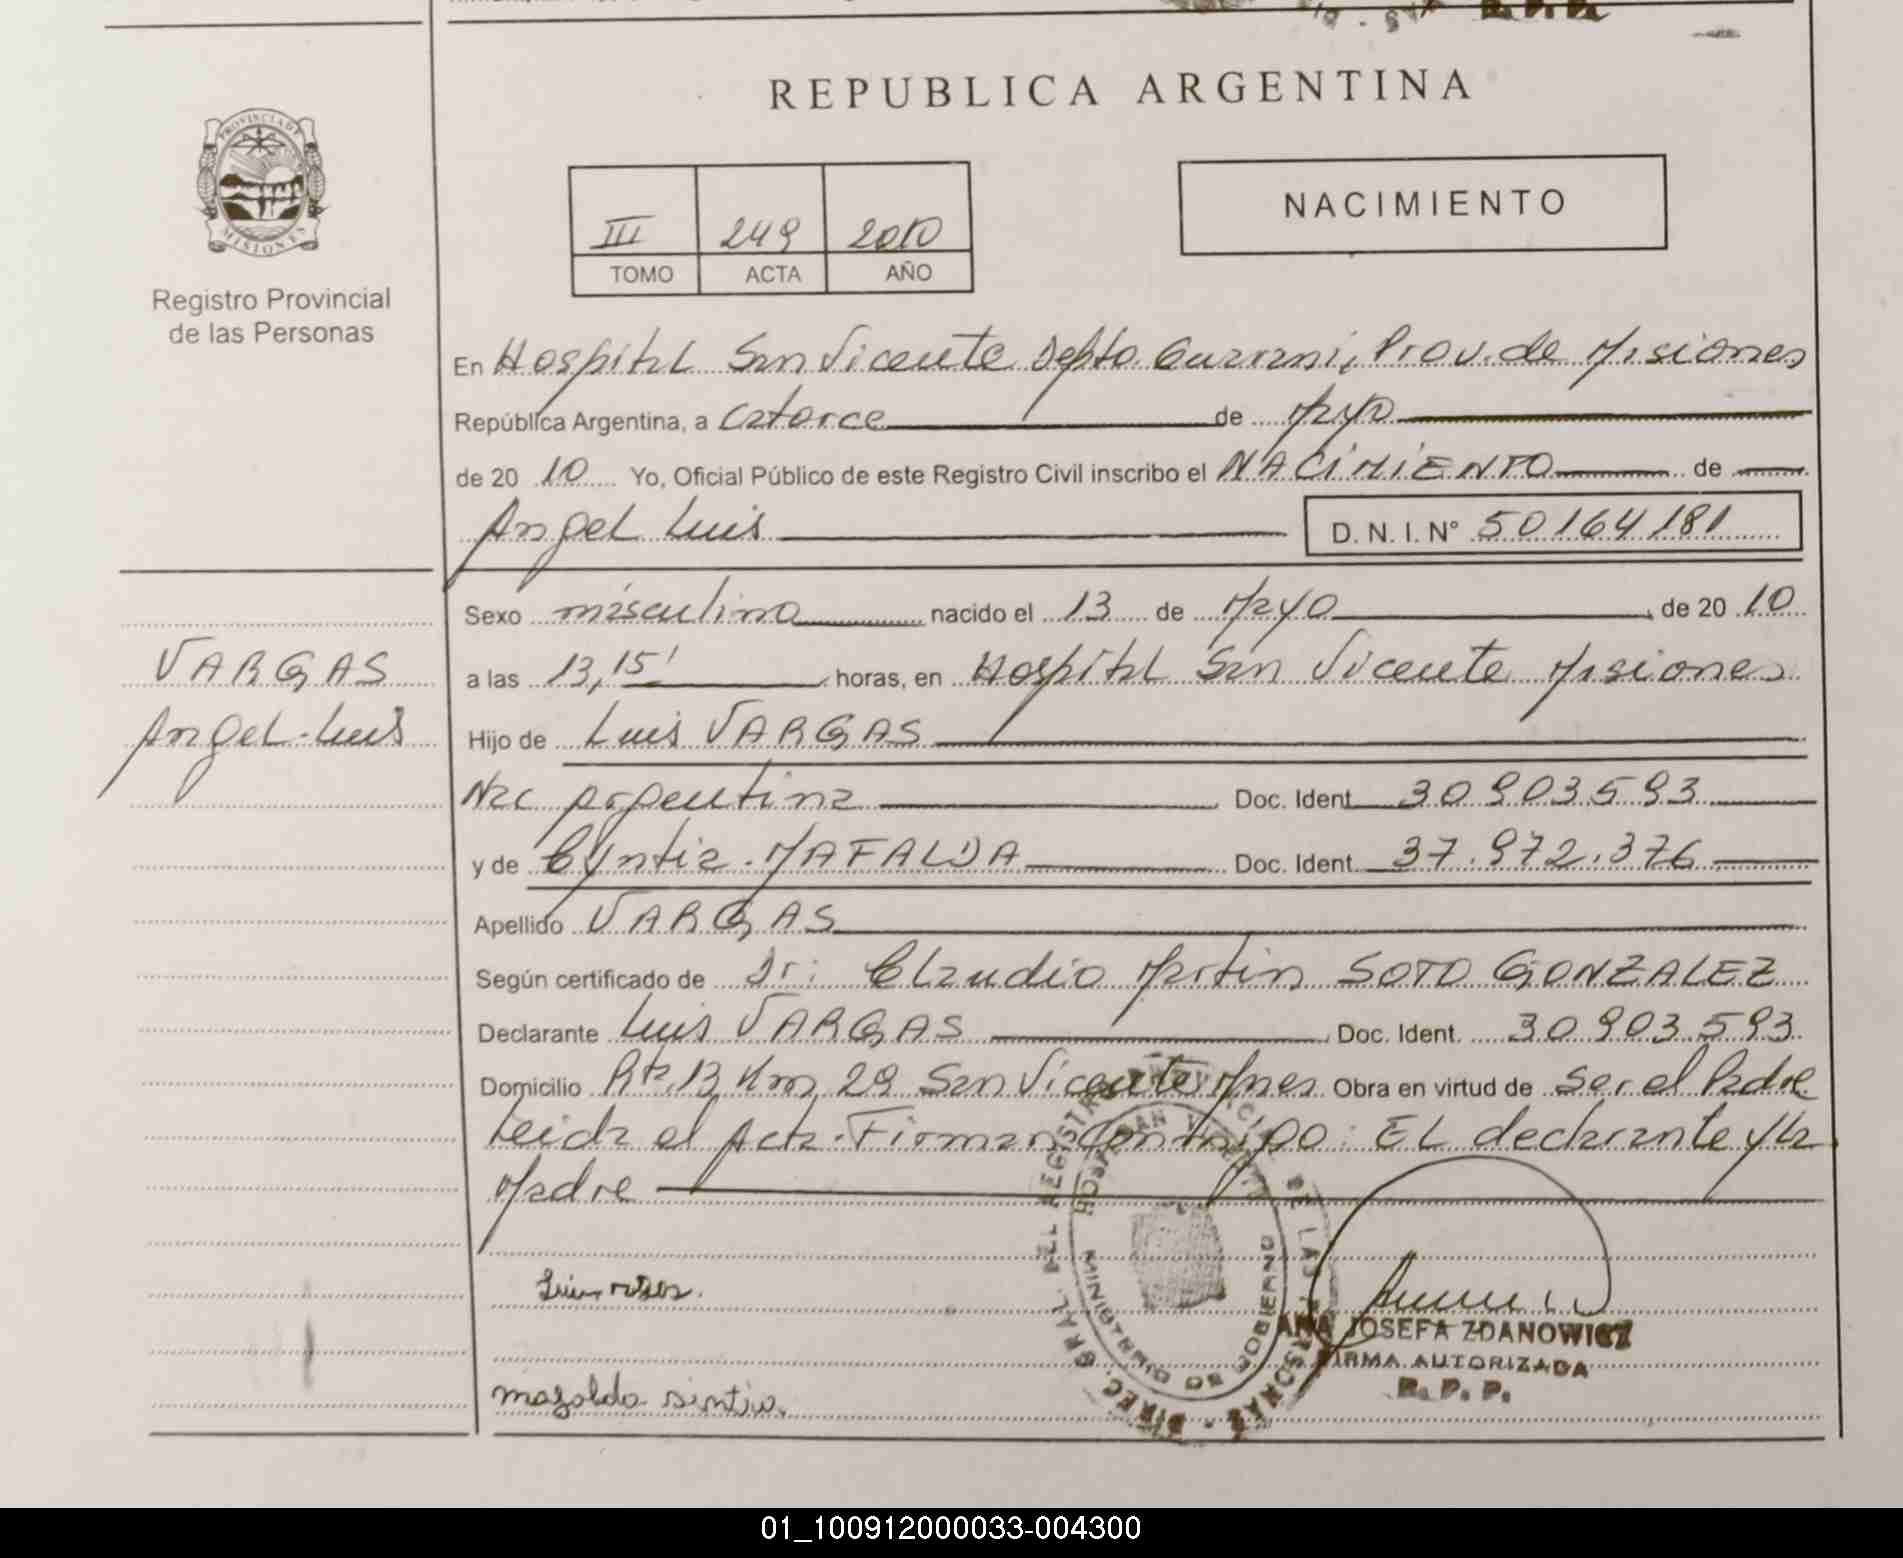 REPUBLICA ARGENTINA
PROVINCIA DE
MISIONES
Registro Provincial
de las Personas
III 249 2010
TOMO ACTA AÑO
NACIMIENTO
En Hospital San Vicente Depto. Guarani, Prov. de Misiones
República Argentina, a Catorce de Mayo
de 20 10 Yo, Oficial Público de este Registro Civil inscribo el NACIMIENTO de
Angel Luis D. N. I. N° 50164181
Sexo masculino nacido el 13 de Mayo de 20 10
VARGAS
Angel Luis
a las 13,15' horas, en Hospital San Vicente Misiones
Hijo de Luis VARGAS
Nac argentina Doc. Ident. 30903593
y de Cyntia MAFALDA Doc. Ident. 37.972.376
Apellido VARGAS
Según certificado de Dr: Claudio Martin SOTO GONZALEZ
Declarante Luis VARGAS Doc. Ident. 30903593
Domicilio Rta. 13 Km 29 San Vicente Mnes Obra en virtud de Ser el Padre
Leida el Acta. Firman Conmigo: EL declarante y la
Madre
DIREC. GRAL. DEL REGISTRO PROVINCIAL DE LAS PERSONAS
HOSP. SAN VICENTE
MINISTERIO DE GOBIERNO
ANA JOSEFA ZDANOWICZ
FIRMA AUTORIZADA
R. P. P.
mafalda sintia.
01_100912000033-004300